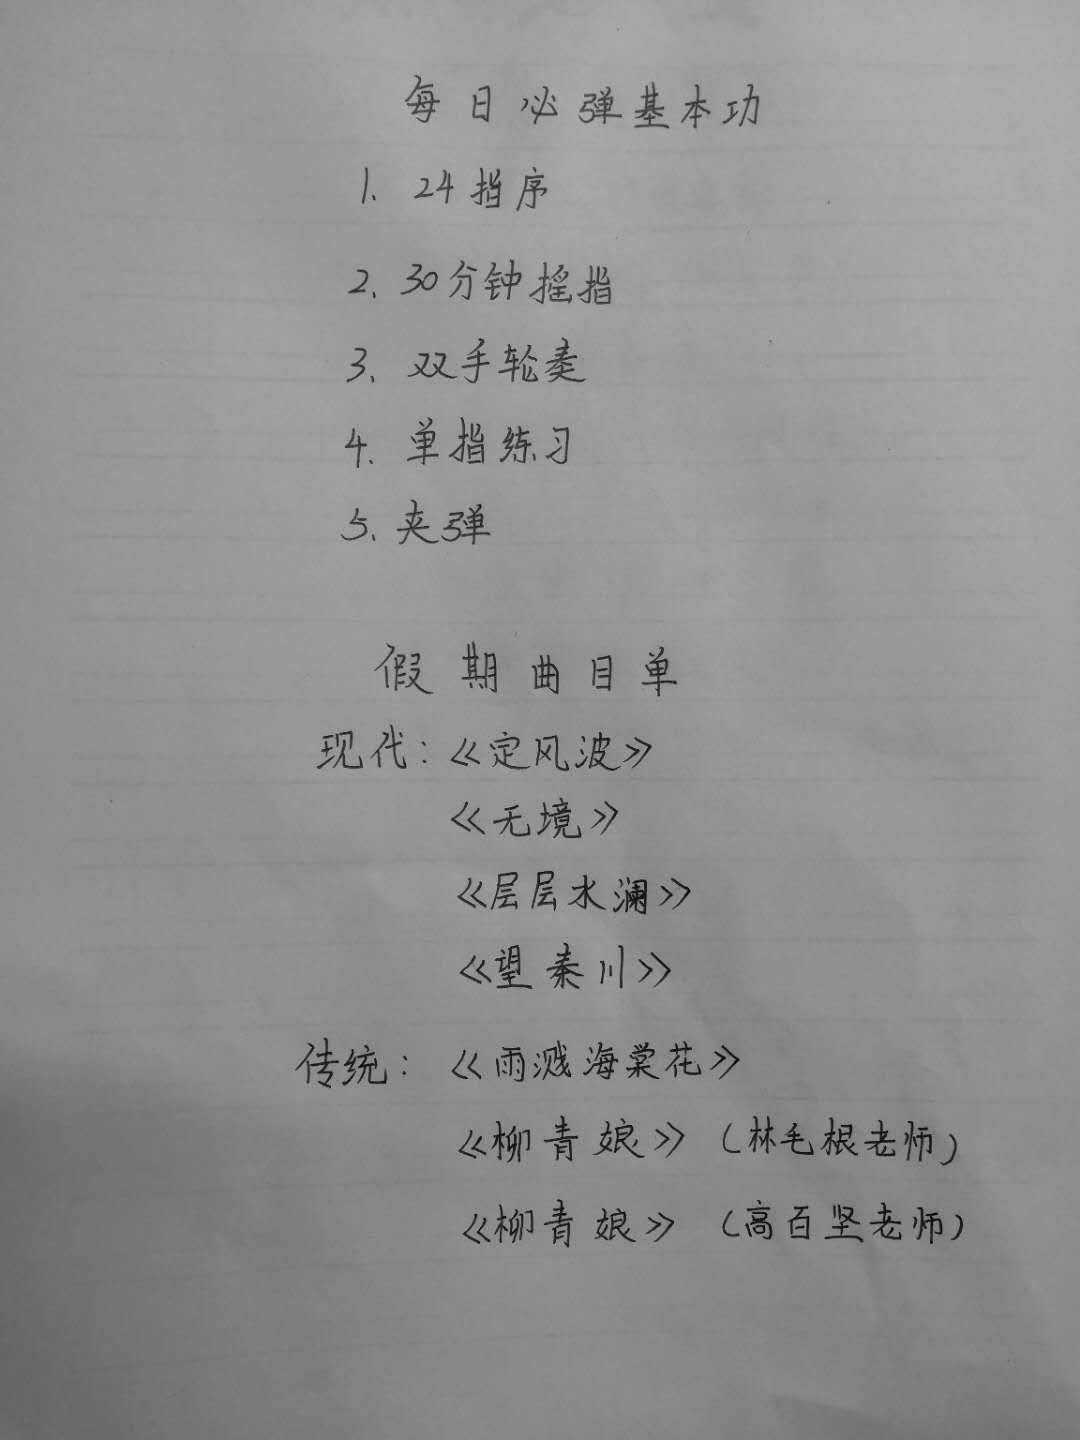 每日必弹基本功
1. 24指序
2、30分钟摇指
3、双手轮奏
4. 单指练习
5、夹弹
假期曲目单
现代：《定风波》
《无境》
《层层水澜》
《望秦川》
传统：《雨溅海棠花》
《柳青娘》（林毛根老师）
《柳青娘》（高百坚老师）